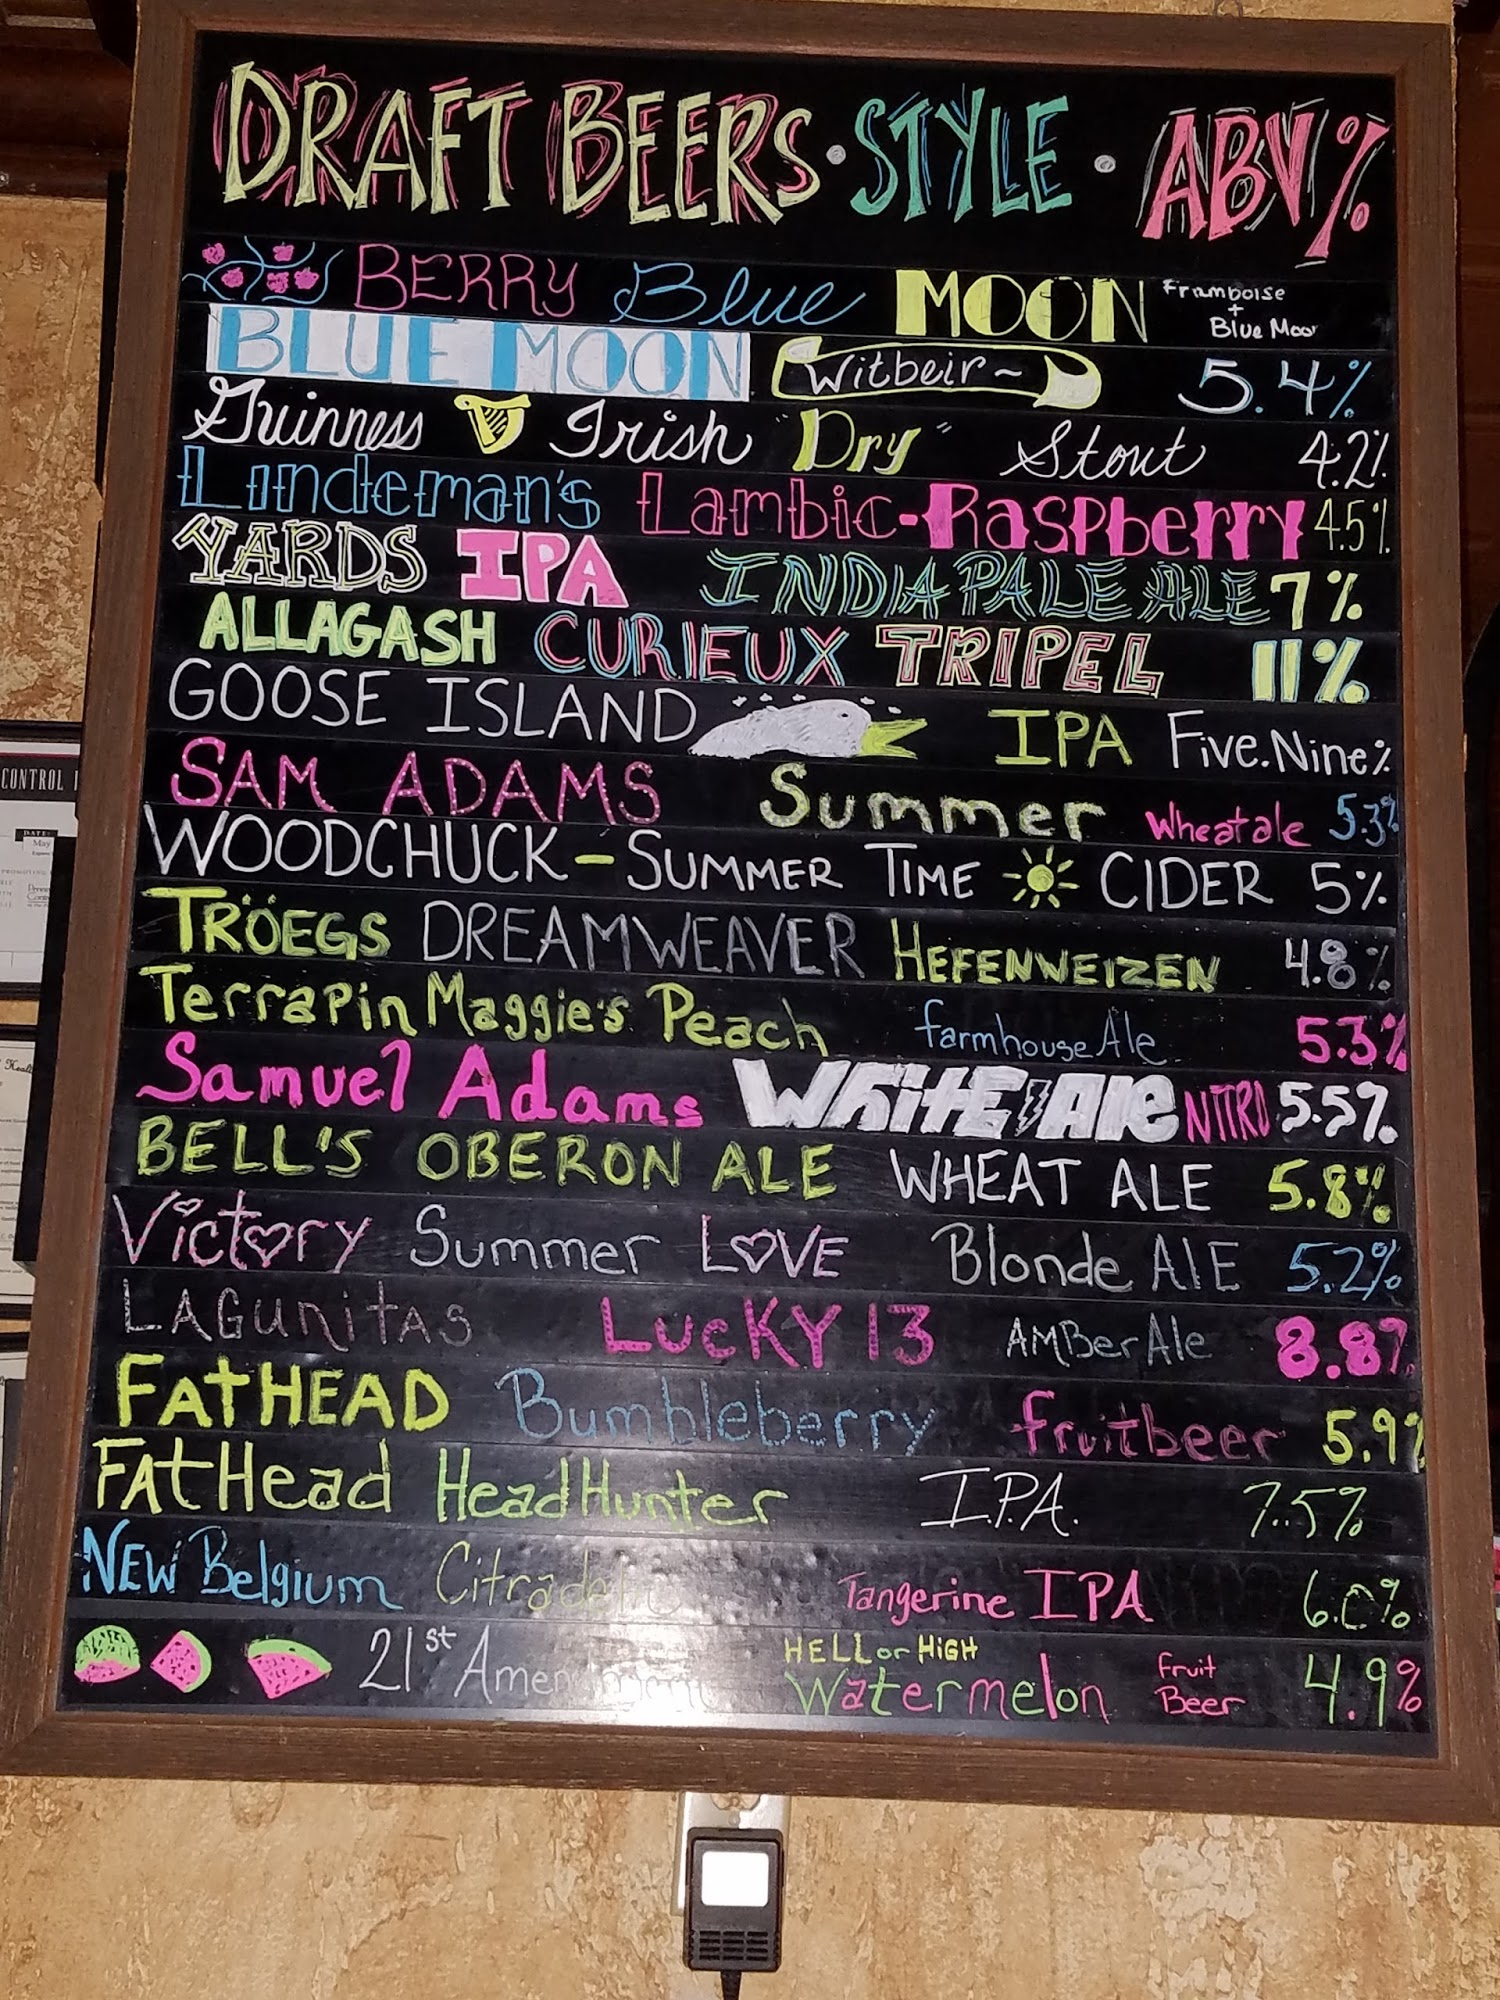 DRAFT BEERS · STYLE · ABV%
BERRY Blue MOON Framboise + Blue Moon
BLUE MOON Witbeir~ 5.4%
Guinness Irish "Dry" Stout 4.2%
Lindeman's Lambic-Raspberry 4.5%
YARDS IPA INDIA PALE ALE 7%
ALLAGASH CURIEUX TRIPEL 11%
GOOSE ISLAND IPA Five.Nine%
SAM ADAMS Summer Wheat ale 5.3%
WOODCHUCK - SUMMER TIME CIDER 5%
TRÖEGS DREAMWEAVER HEFENWEIZEN 4.8%
Terrapin Maggie's Peach farmhouse Ale 5.3%
Samuel Adams WhitE Ale NITRO 5.5%
BELL'S OBERON ALE WHEAT ALE 5.8%
Victory Summer LOVE Blonde AlE 5.2%
LAGunitAS LucKY 13 AMBer Ale 8.8%
FAtHEAD Bumbleberry fruitbeer 5.9%
FAtHead HeadHunter I.P.A. 7.5%
NEW Belgium Tangerine IPA 6.0%
21st HELL or HiGH Watermelon Fruit Beer 4.9%
CONTROL
DATE:
May